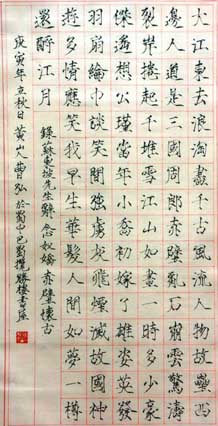 大江東去浪淘盡千古風流人物故壘西
邊人道是三國周郎赤壁亂石崩雲驚濤
裂岸捲起千堆雪江山如畫一時多少豪
傑遙想公瑾當年小喬初嫁了雄姿英發
羽扇綸巾談笑間強虜灰飛煙滅故國神
遊多情應笑我早生華髮人間如夢一樽
還酹江月
錄蘇東坡先生辭念奴嬌赤壁懷古
庚寅年立秋日黃山人曹弘於蜀中巴蜀攬勝樓書